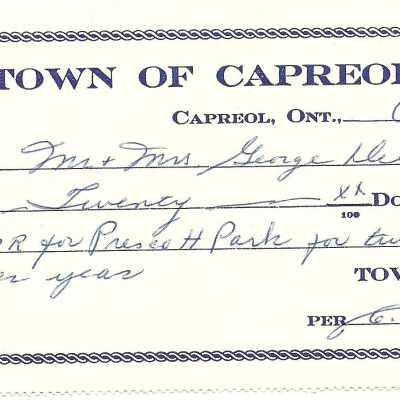 TOWN OF CAPREOL
CAPREOL, ONT.,
Mr + Mrs. George
Twenty xx/100 Do
for Prescott Park for
year
TOW
PER C.